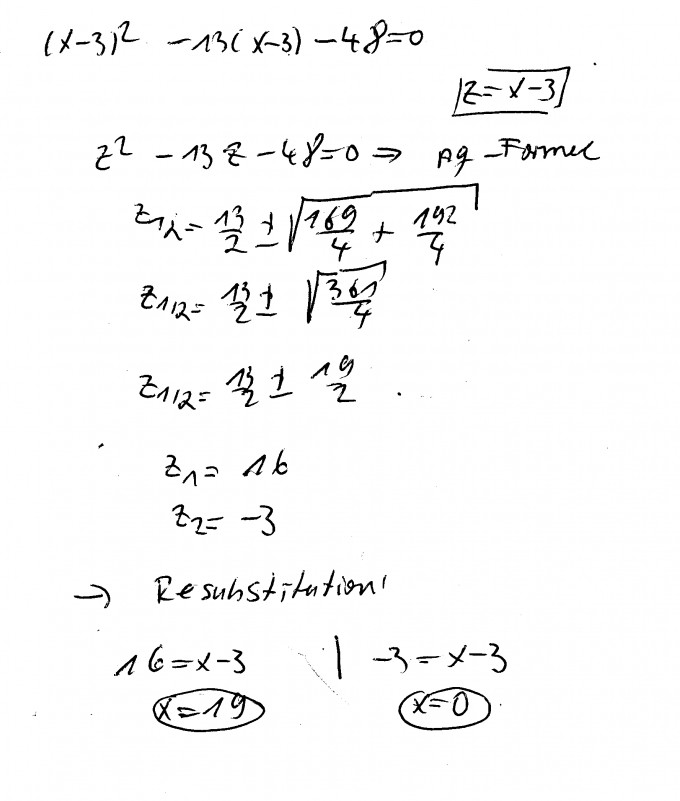 (x-3)² -13(x-3) -48=0
z=x-3
z² -13z-48=0 ⇒ pq-Formel
z1/2= 13/2 ± √(169/4 + 192/4)
z1/2= 13/2 ± √(361/4)
z1/2= 13/2 ± 19/2
z1= 16
z2= -3
→ Resubstitution
16=x-3 | -3=x-3
x=19 x=0